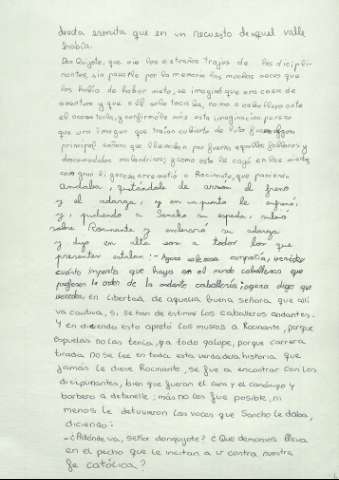 devota ermita que en un recuesto de aquel valle
había.
Don Quijote, que vio los extraños trajes de los discipli-
nantes, sin pasarle por la memoria las muchas veces que
los había de haber visto, se imaginó que era cosa de
aventura y que a él solo tocaba, como a caballero ante
el acometerla, y confirmóle más esta imaginación pensar
que una imagen que traían cubierta de luto fuese alguna
principal señora que llevaban por fuerza aquellos follones y
descomedidos malandrines; y como esto le cayó en las mientes
con gran ligereza arremetió a Rocinante, que paciendo
andaba, quitándole de arzón el freno
y el adarga, y en un punto le enfrenó,
y, pidiendo a Sancho su espada, subió
sobre Rocinante y embrazó su adarga
y dijo en alta voz a todos los que
presentes estaban: - Agora valerosa compañía, veredes
cuánto importa que haya en el mundo caballeros que
profesen la orden de la andante caballería; agora digo que
veredes en libertad de aquella buena señora que allí
va cautiva, si se han de estimar los caballeros andantes.
Y en diciendo esto apretó los muslos a Rocinante, porque
espuelas no las tenía, ya todo galope, porque carrera
tirada no se lee en toda esta verdadera historia que
jamás le diese Rocinante, se fue a encontrar con los
disciplinantes, bien que fueran el cura y el canónigo y
barbero a detenelle; mas no les fue posible, ni
menos le detuvieron las voces que Sancho le daba,
diciendo:
-¿Adónde va, señor donquijote? ¿Que demonios lleva
en el pecho que le incitan a ir contra nuestra
fe católica?